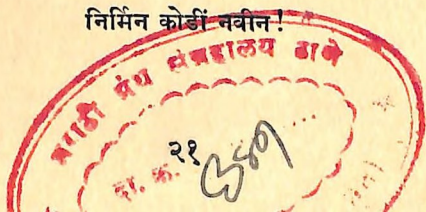 निर्मिन कोडीं नवीन !
मराठी ग्रंथ संग्रहालय ठाणे
दा. क्र.
२१